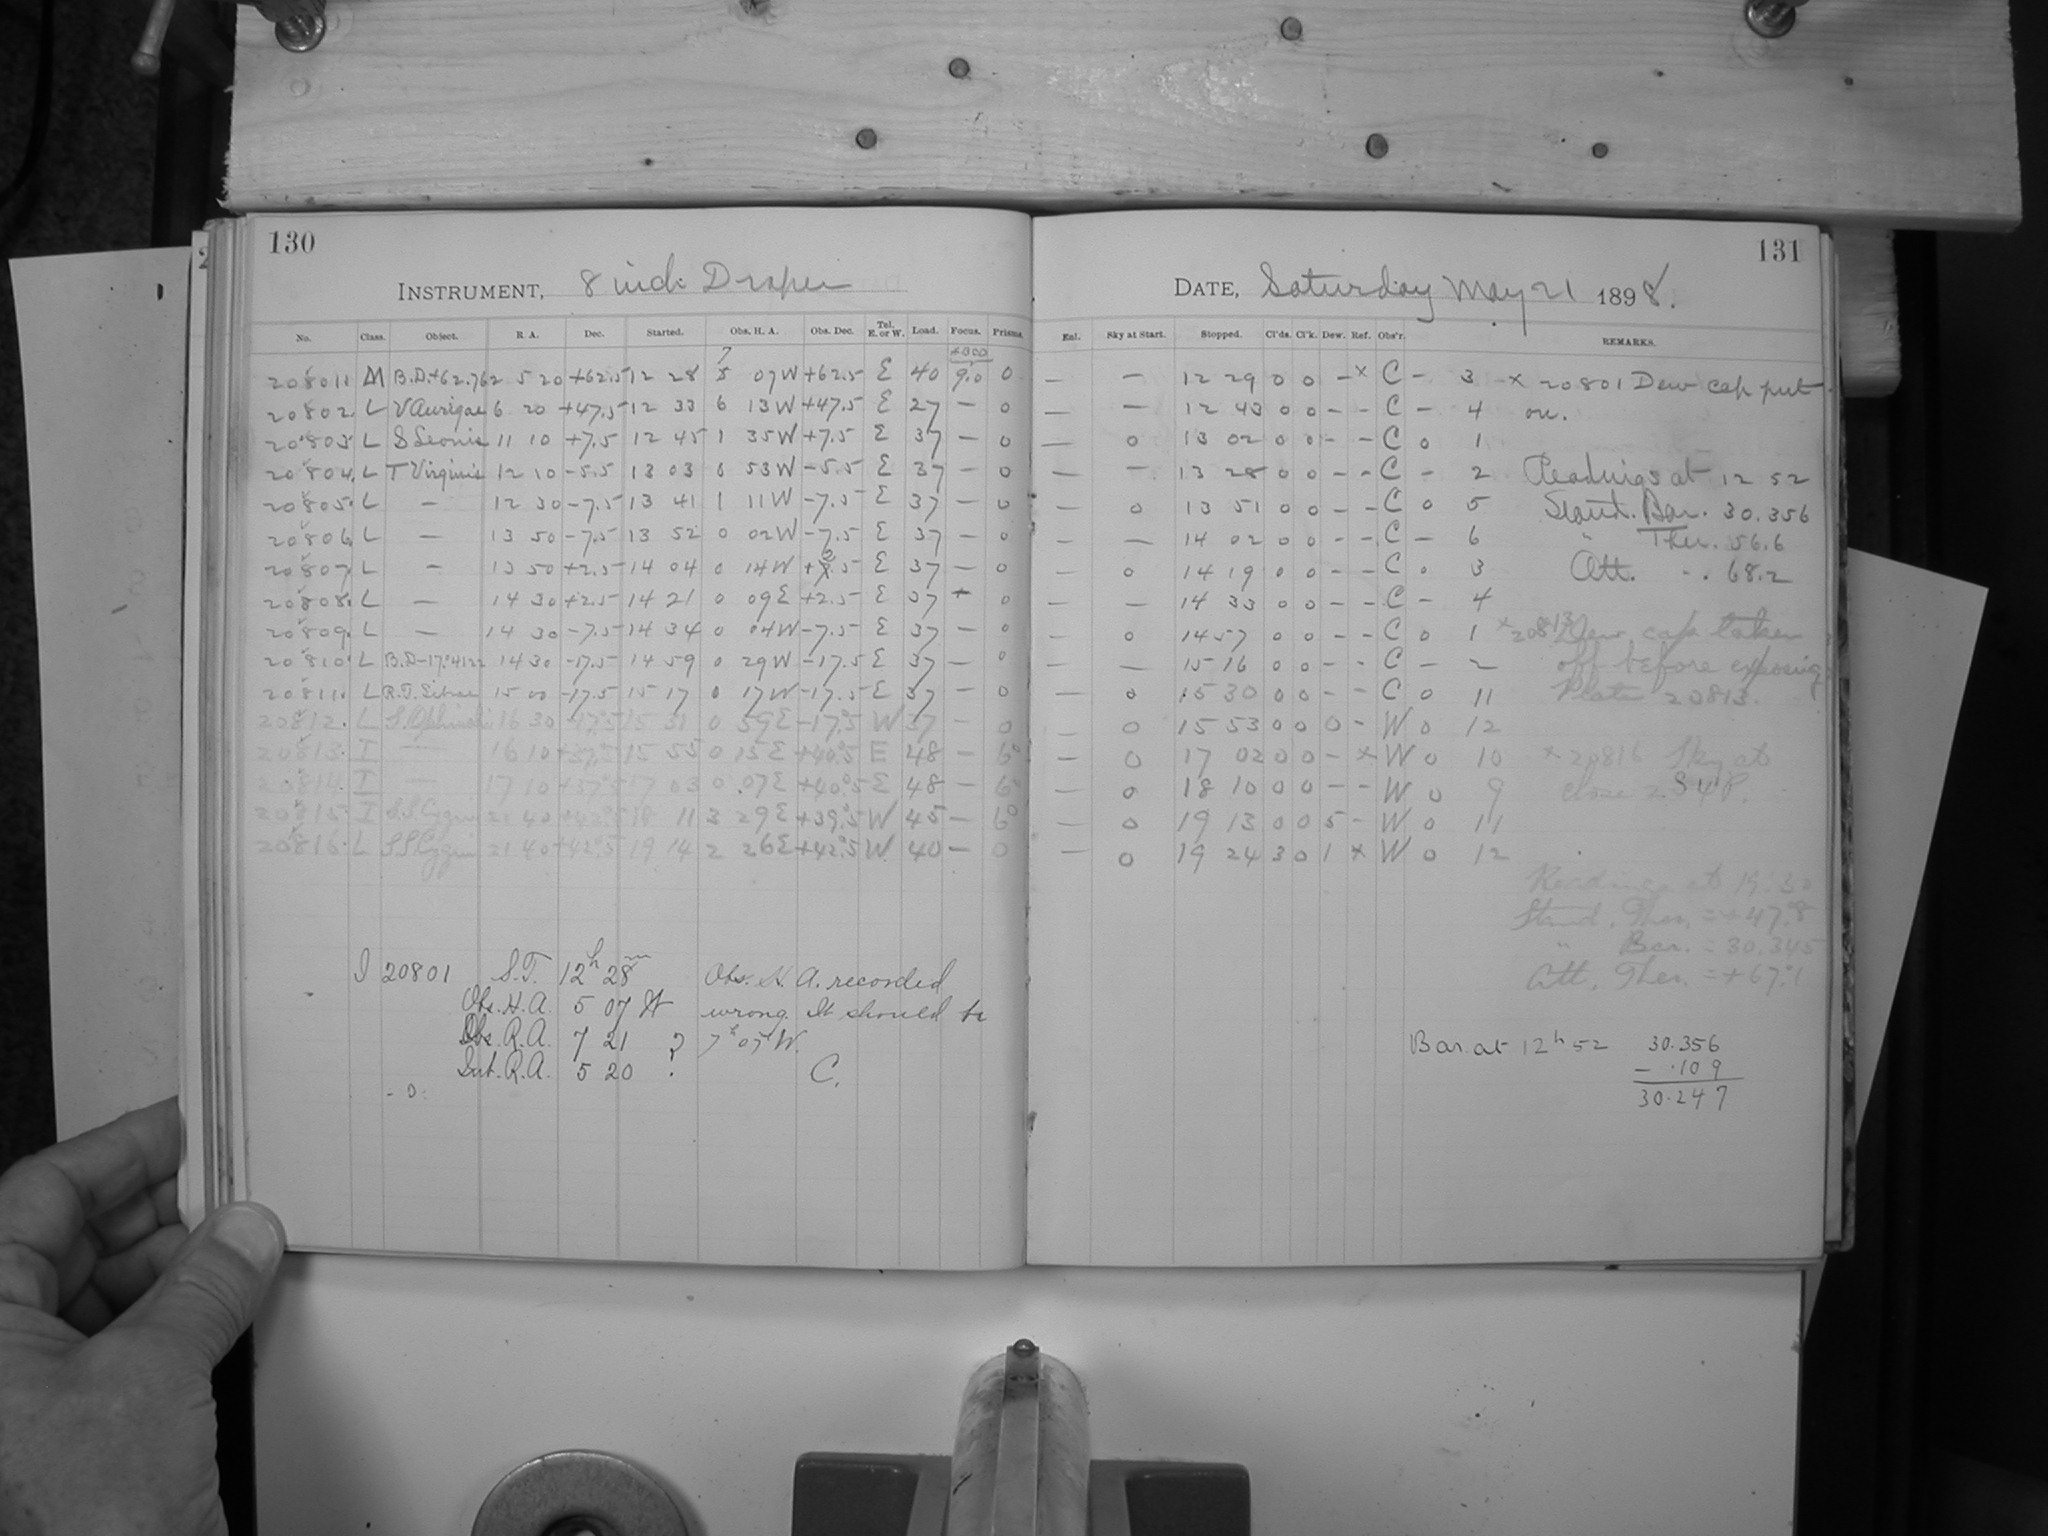 130
INSTRUMENT, 8 inch Draper
No. Class. Object. R. A. Dec. Started. Obs. H. A. Obs. Dec. Tel. E. or W. Load. Focus. Prisms.
20801. M B.D.+62.762 5 20 +62.5 12 28 5 7 07 W +62.5 E 40 9.0 0
20802. L V Aurigae 6 20 +47.5 12 33 6 13 W +47.5 E 27 – 0
20803. L S Leonis 11 10 +7.5 12 45 1 35 W +7.5 E 37 – 0
20804. L T Virginis 12 10 -5.5 13 03 0 53 W -5.5 E 37 – 0
20805. L – 12 30 -7.5 13 41 1 11 W -7.5 E 37 – 0
20806. L – 13 50 -7.5 13 52 0 02 W -7.5 E 37 – 0
20807. L – 13 50 +2.5 14 04 0 14 W +2.5 E 37 – 0
20808. L – 14 30 +2.5 14 21 0 09 E +2.5 E 37 – 0
20809. L – 14 30 -7.5 14 34 0 04 W -7.5 E 37 – 0
20810. L B.D-17°4122 14 30 -17.5 14 59 0 29 W -17.5 E 37 – 0
20811. L R.T. Librae 15 00 -17.5 15 17 0 17 W -17.5 E 37 – 0
20812. L 16 30 -17°.5 15 31 0 59 E -17°.5 W 37 – 0
20813. I — 16 10 +37°.5 15 55 0 15 E +40°.5 E 48 – 6°
20814. I — 17 10 +37°.5 17 03 0 07 E +40°.5 E 48 – 6°
20815. I S.S. Cygni 21 40 +42°.5 18 11 3 29 E +39°.5 W 45 – 6°
20816. L S.S Cygni 21 40 +42°.5 19 14 2 26 E +42°.5 W 40 – 0
I 20801 S.T. 12h 28m Obs. H. A. recorded
Obs. H.A. 5 07 W wrong. It should be
Obs. R.A. 7 21 ? 7h 07m W.
Int. R.A. 5 20 C.
131
DATE, Saturday May 21 1898.
Enl. Sky at Start. Stopped. Cl'ds. Cl'k. Dew. Ref. Obs'r. REMARKS.
– – 12 29 0 0 – x C – 3 x 20801 Dew cap put
– – 12 43 0 0 – – C – 4 on.
– 0 13 02 0 0 – – C 0 1
– – 13 28 0 0 – – C – 2 Readings at 12 52
– 0 13 51 0 0 – – C 0 5 Stand. Bar. 30.356
– – 14 02 0 0 – – C – 6 " Ther. 56.6
– 0 14 19 0 0 – – C 0 3 Att. " 68.2
– – 14 33 0 0 – – C – 4
– 0 14 57 0 0 – – C 0 1 x 20813 Dew cap taken
– – 15 16 0 0 – – C – 2 off before exposing
– 0 15 30 0 0 – – C 0 11 Plate 20813.
– 0 15 53 0 0 0 – W 0 12
– 0 17 02 0 0 – x W 0 10 x 20816 Sky at
– 0 18 10 0 0 – – W 0 9 close
– 0 19 13 0 0 5 – W 0 11
– 0 19 24 3 0 1 x W 0 12
Readings at 19:30
Stand. Ther. = +47°.8
" Bar. = 30.345
Att. Ther. = +67°.1
Bar. at 12h 52 30.356
– .109
30.247